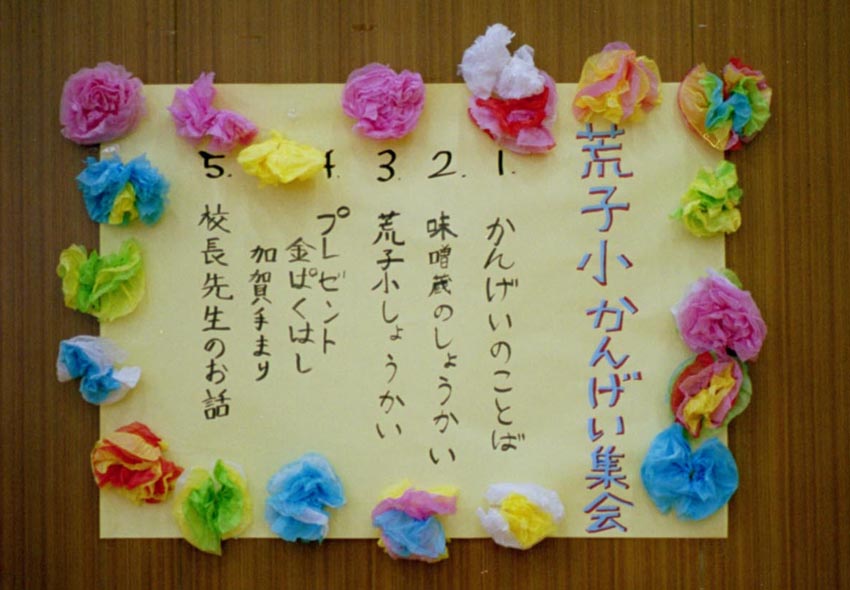 荒子小かんげい集会
1. かんげいのことば
2. 味噌蔵のしょうかい
3. 荒子小しょうかい
4. プレゼント
金ぱくはし
加賀手まり
5. 校長先生のお話